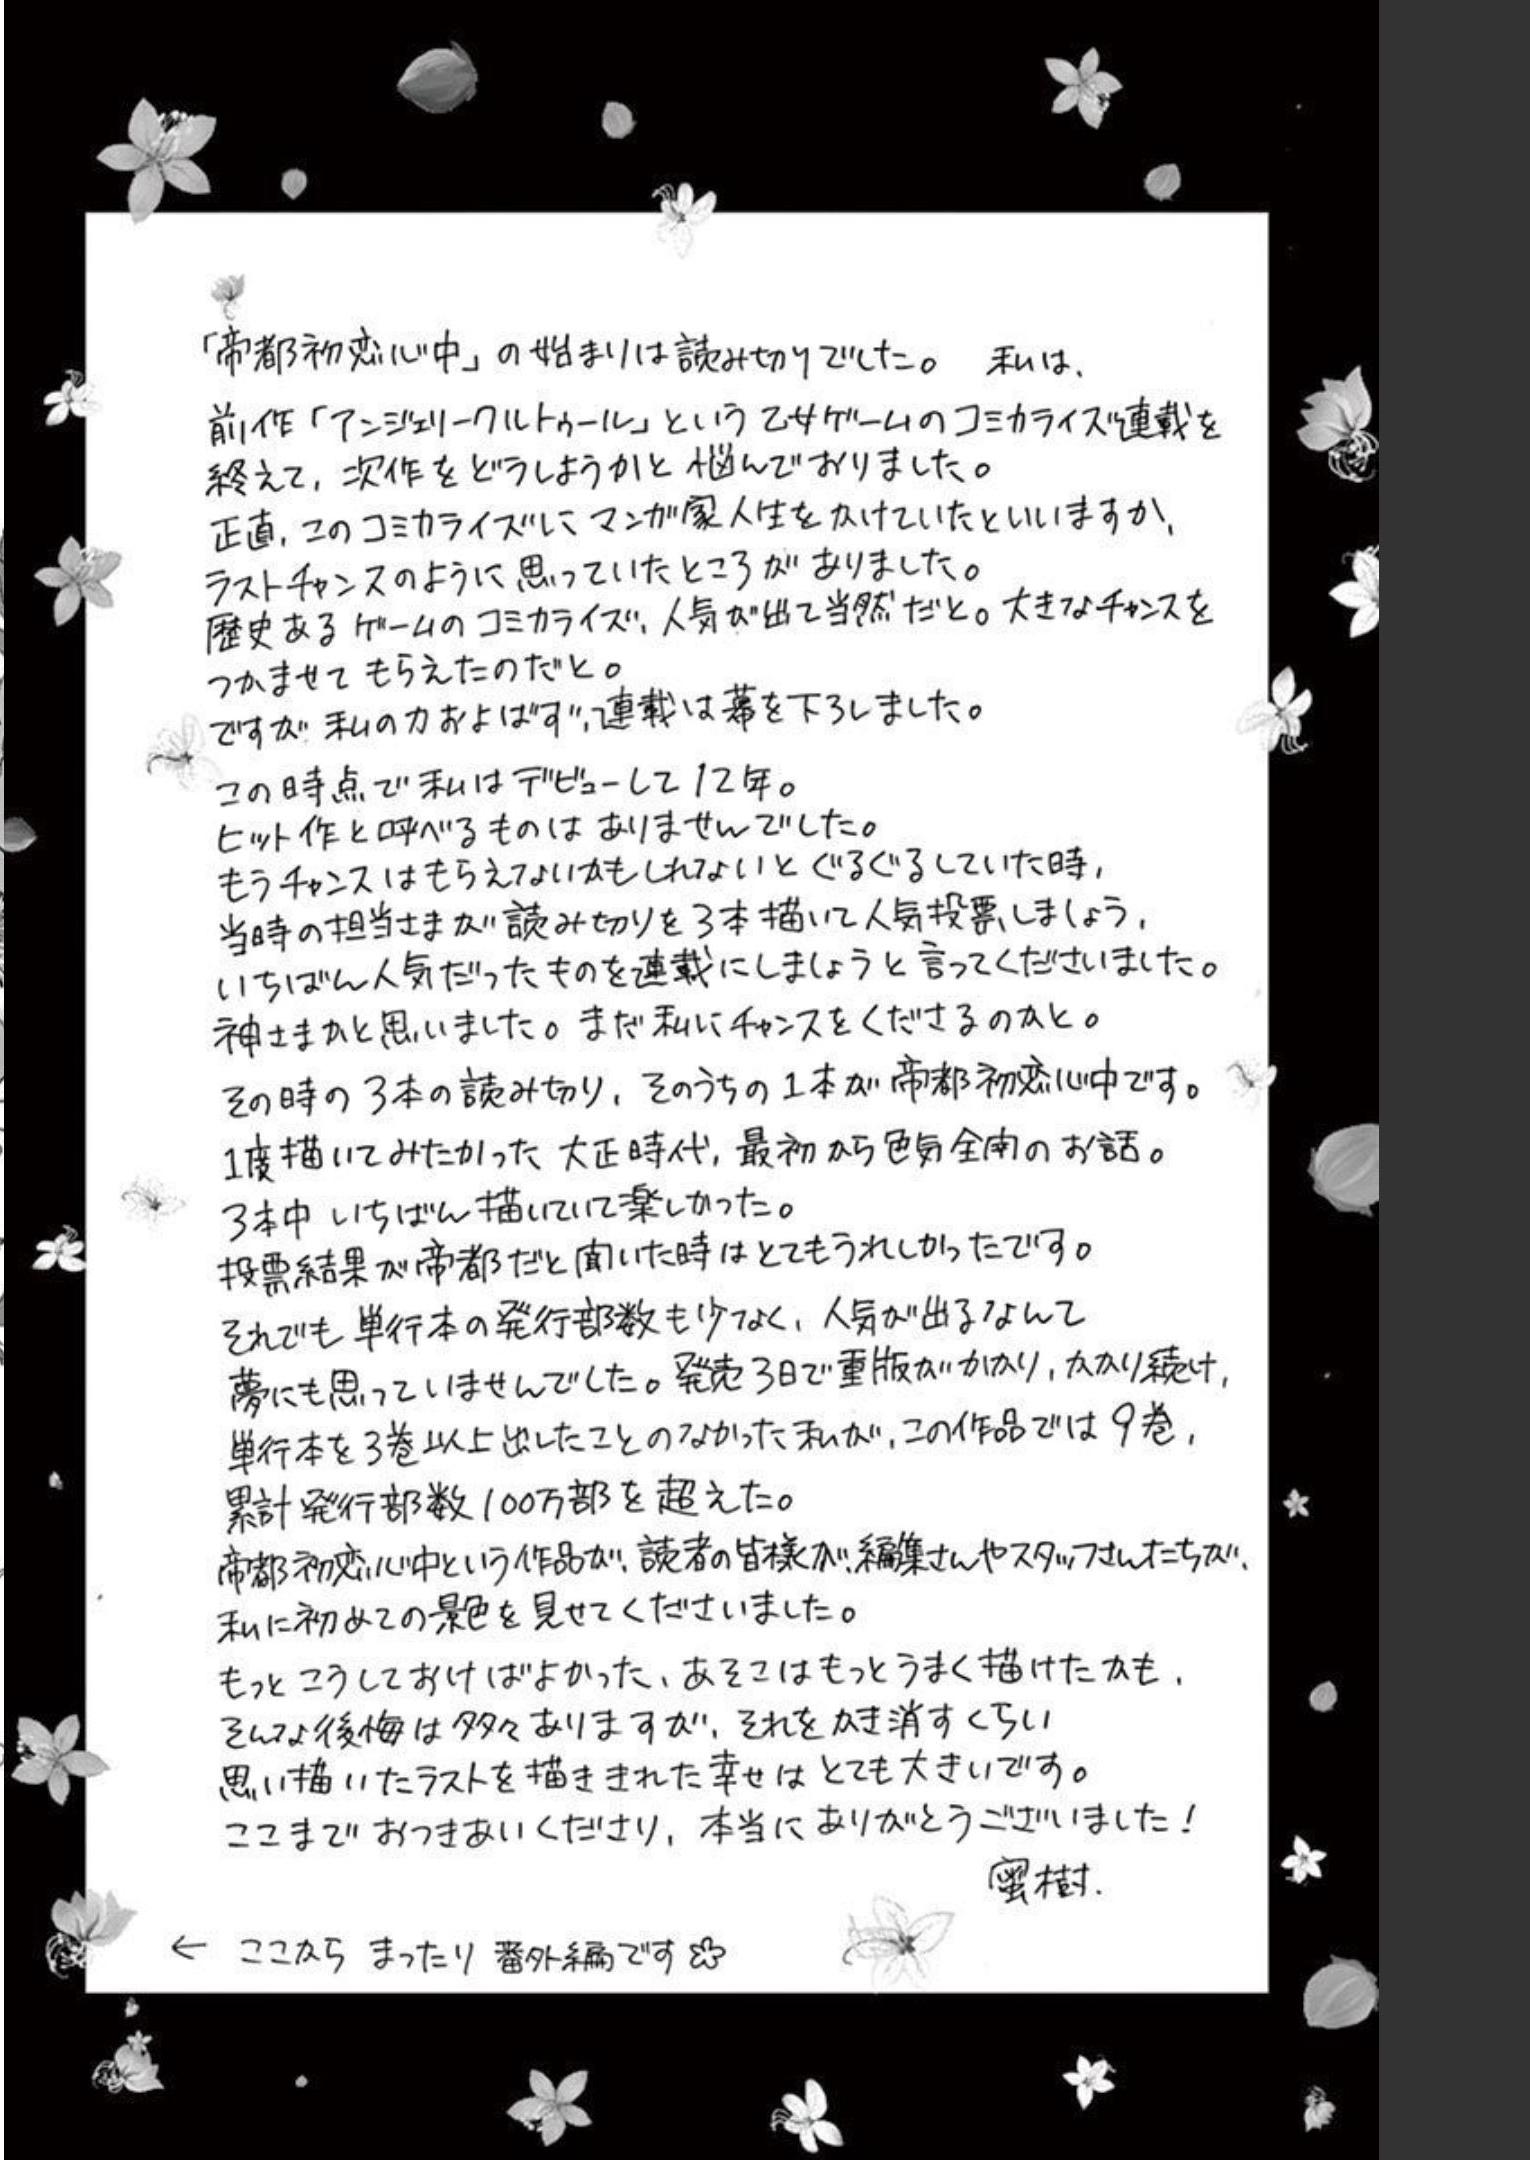 「帝都初恋心中」の始まりは読み切りでした。 私は、
前作「アンジェリークルトゥール」という乙女ゲームのコミカライズ連載を
終えて、次作をどうしようかと悩んでおりました。
正直、このコミカライズにマンガ家人生をかけていたといいますか、
ラストチャンスのように思っていたところがありました。
歴史あるゲームのコミカライズ、人気が出て当然だと。大きなチャンスを
つかませてもらえたのだと。
ですが私の力およばず、連載は幕を下ろしました。
この時点で私はデビューして12年。
ヒット作と呼べるものはありませんでした。
もうチャンスはもらえないかもしれないとぐるぐるしていた時、
当時の担当さまが読み切りを3本描いて人気投票しましょう、
いちばん人気だったものを連載にしましょうと言ってくださいました。
神さまかと思いました。まだ私にチャンスをくださるのかと。
その時の3本の読み切り、そのうちの1本が帝都初恋心中です。
1度描いてみたかった大正時代、最初から色気全開のお話。
3本中いちばん描いていて楽しかった。
投票結果が帝都だと聞いた時はとてもうれしかったです。
それでも単行本の発行部数も少なく、人気が出るなんて
夢にも思っていませんでした。発売3日で重版がかかり、かかり続け、
単行本を3巻以上出したことのなかった私が、この作品では9巻、
累計発行部数100万部を超えた。
帝都初恋心中という作品が、読者の皆様が、編集さんやスタッフさんたちが、
私に初めての景色を見せてくださいました。
もっとこうしておけばよかった、あそこはもっとうまく描けたかも、
そんな後悔は多々ありますが、それをかき消すくらい
思い描いたラストを描ききれた幸せはとても大きいです。
ここまでおつきあいくださり、本当にありがとうございました!
蜜樹.
← ここから まったり 番外編です